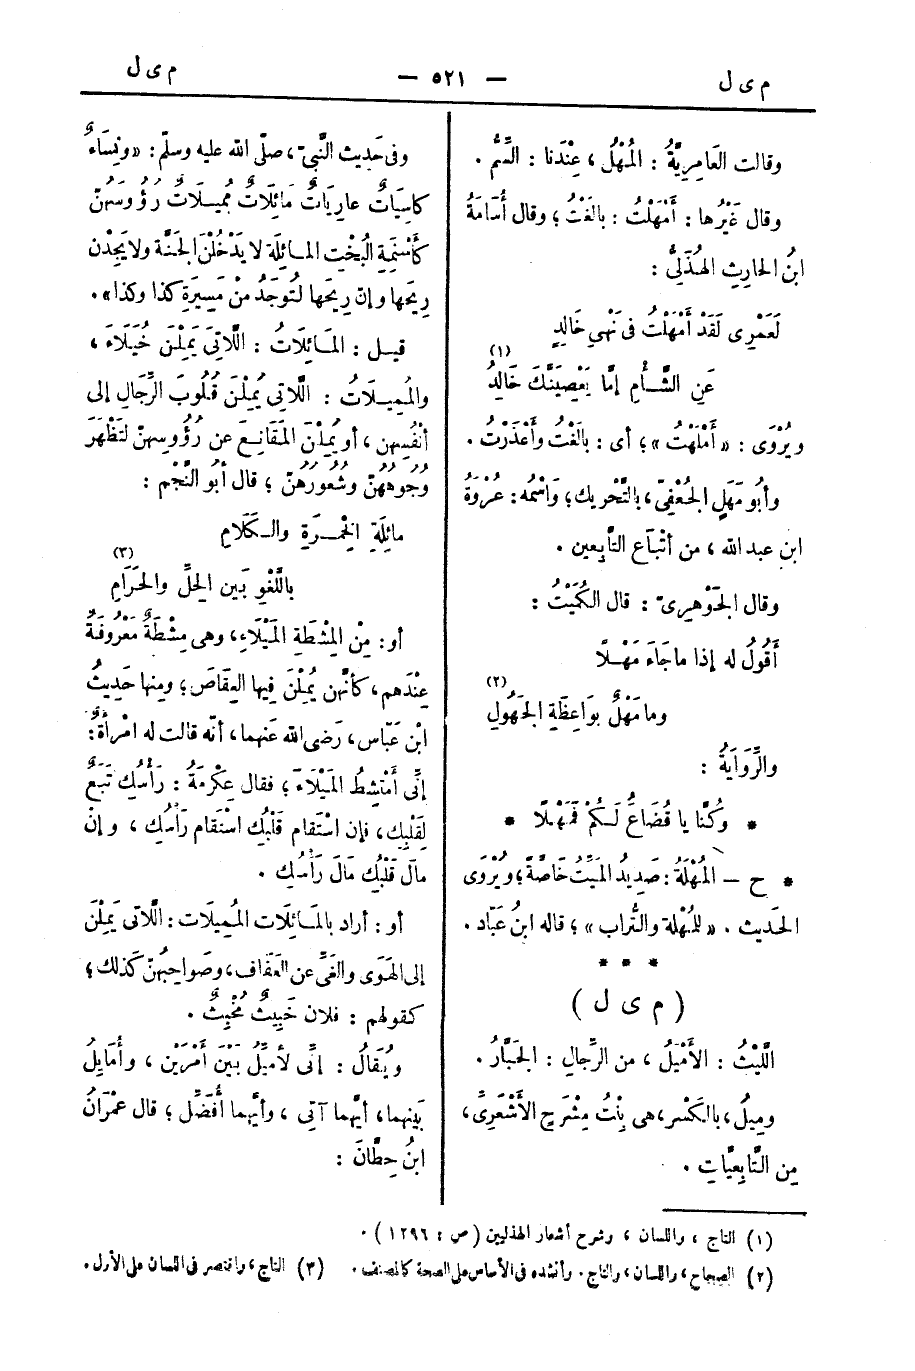 م ى ل
— ٥٢١ —
م ى ل
وقالت العَامِرِيَّةُ : المُهْلُ ، عِنْدَنا : السَّمُّ .
وقال غَيْرُها : أَمْهَلْتُ : بالَغْتُ ؛ وقال أُسَامَةُ
ابنُ الحارِثِ الهُذَلِىُّ :
لَعَمْرِى لَقَدْ أَمْهَلْتُ فى نَهْىِ خَالِدٍ
عَنِ الشَّأْمِ إمَّا يَعْصِيَنَّكَ خَالِدُ (١)
ويُرْوَى : « أَمْلَهْتُ » ؛ أى : بالَغْتُ وأَعْذَرْتُ .
وأبو مَهَلٍ الجُعْفِىّ ، بالتَّحْرِيك ؛ وَاسْمُه : عُرْوَةُ
ابن عبد الله ، من أَتْبَاعِ التَّابِعين .
وقال الجَوْهرِىّ : قال الكُمَيْتُ :
أَقُولُ له إذا ما جَاءَ مَهْلًا
وما مَهْلٌ بوَاعِظَةِ الجَهُولِ (٢)
والرِّوَايَةُ :
* وكُنَّا يا قُضَاعُ لَكُمْ فَمَهْلًا *
* ح — المُهْلَةُ : صَدِيدُ المَيِّتُ خَاصَّةً ؛ ويُرْوَى
الحَديث . « للمُهْلَة والتُّراب » ؛ قاله ابنُ عَبّاد .
* * *
( م ى ل )
اللَّيْثُ : الأَمْيَلُ ، من الرِّجَالِ : الجَبَّارُ .
ومِيلُ ، بالكَسْر ، هى بِنْتُ مِشْرَحٍ الأَشْعَرِىّ ،
مِن التَّابِعِيَّاتِ .
وفى حَديث النَّبىّ ، صلّى الله عليه وسلّم : « ونِسَاءٌ
كاسِيَاتٌ عارِيَاتٌ مَائِلَاتٌ مُمِيلَاتٌ رُؤُوسَهُنّ
كأَسْنِمَةِ البُخْتِ المائِلَة لا يَدْخُلْنَ الجَنَّة ولا يَجِدْن
رِيحَها وإنّ رِيحَها لَتُوجَدُ منْ مَسِيرَةِ كذا وكذا » .
قيل : المَائِلَاتُ : اللَّاتِى يَمِلْنَ خُيَلَاءَ ،
والمُمِيلَاتُ : اللَّاتِى يُمِلْنَ قُلُوبَ الرِّجَالِ إلى
أنْفُسِهِن ، أو يُمِلْنَ المَقَانِعَ عن رُؤُوسِهِنّ لتَظْهَرَ
وُجُوهُهُنّ وشُعُورُهُنّ ؛ قال أَبُو النَّجْم :
مائِلَةِ الخِمْرَةِ والكَلَامِ
باللَّغْوِ بَين الحِلِّ والحَرَامِ (٣)
أو : مِنْ المِشْطَةِ المَيْلَاءِ ، وهى مِشْطَةٌ مَعْرُوفَةٌ
عِنْدَهم ، كأنّهن يُمِلْنَ فيها العِقَاصَ ؛ ومنها حَدِيثُ
ابْن عَبّاس ، رَضى الله عَنهما ، أنّه قالت له امْرأَةٌ :
إنِّى أَمْتَشِطُ المَيْلَاءَ ؛ فقال عِكْرِمَةُ : رَأْسُكِ تَبَعٌ
لِقَلْبِكِ ، فإن اسْتَقَام قَلْبُكِ اسْتَقام رَأْسُكِ ، وإنْ
مالَ قَلْبُكِ مَالَ رَأْسُكِ .
أو : أراد بالمَائِلَات المُمِيلَات : اللَّاتى يَمِلْنَ
إلى الهَوَى والغَىّ عن العَفَاف ، وصَوَاحِبُهُنّ كَذلك ؛
كقولهم : فلان خَبِيثٌ مُخْبِثٌ .
ويُقَالُ : إنِّى لأُمَيِّلُ بَيْنَ أَمْرَيْن ، وأُمَايِلُ
بَينهما ، أَيّهما آتِى ، وأيّهما أُفَضِّل ؛ قال عمْرَانُ
ابنُ حِطَّانَ :
(١) التاج ، واللسان ، وشرح أشعار الهذليين ( ص : ١٢٩٦ ) .
(٢) الصحاح ، واللسان ، والتاج . وأنشده فى الأساس على الصحة كالمصنف . (٣) التاج ، واقتصر فى اللسان على الأول .